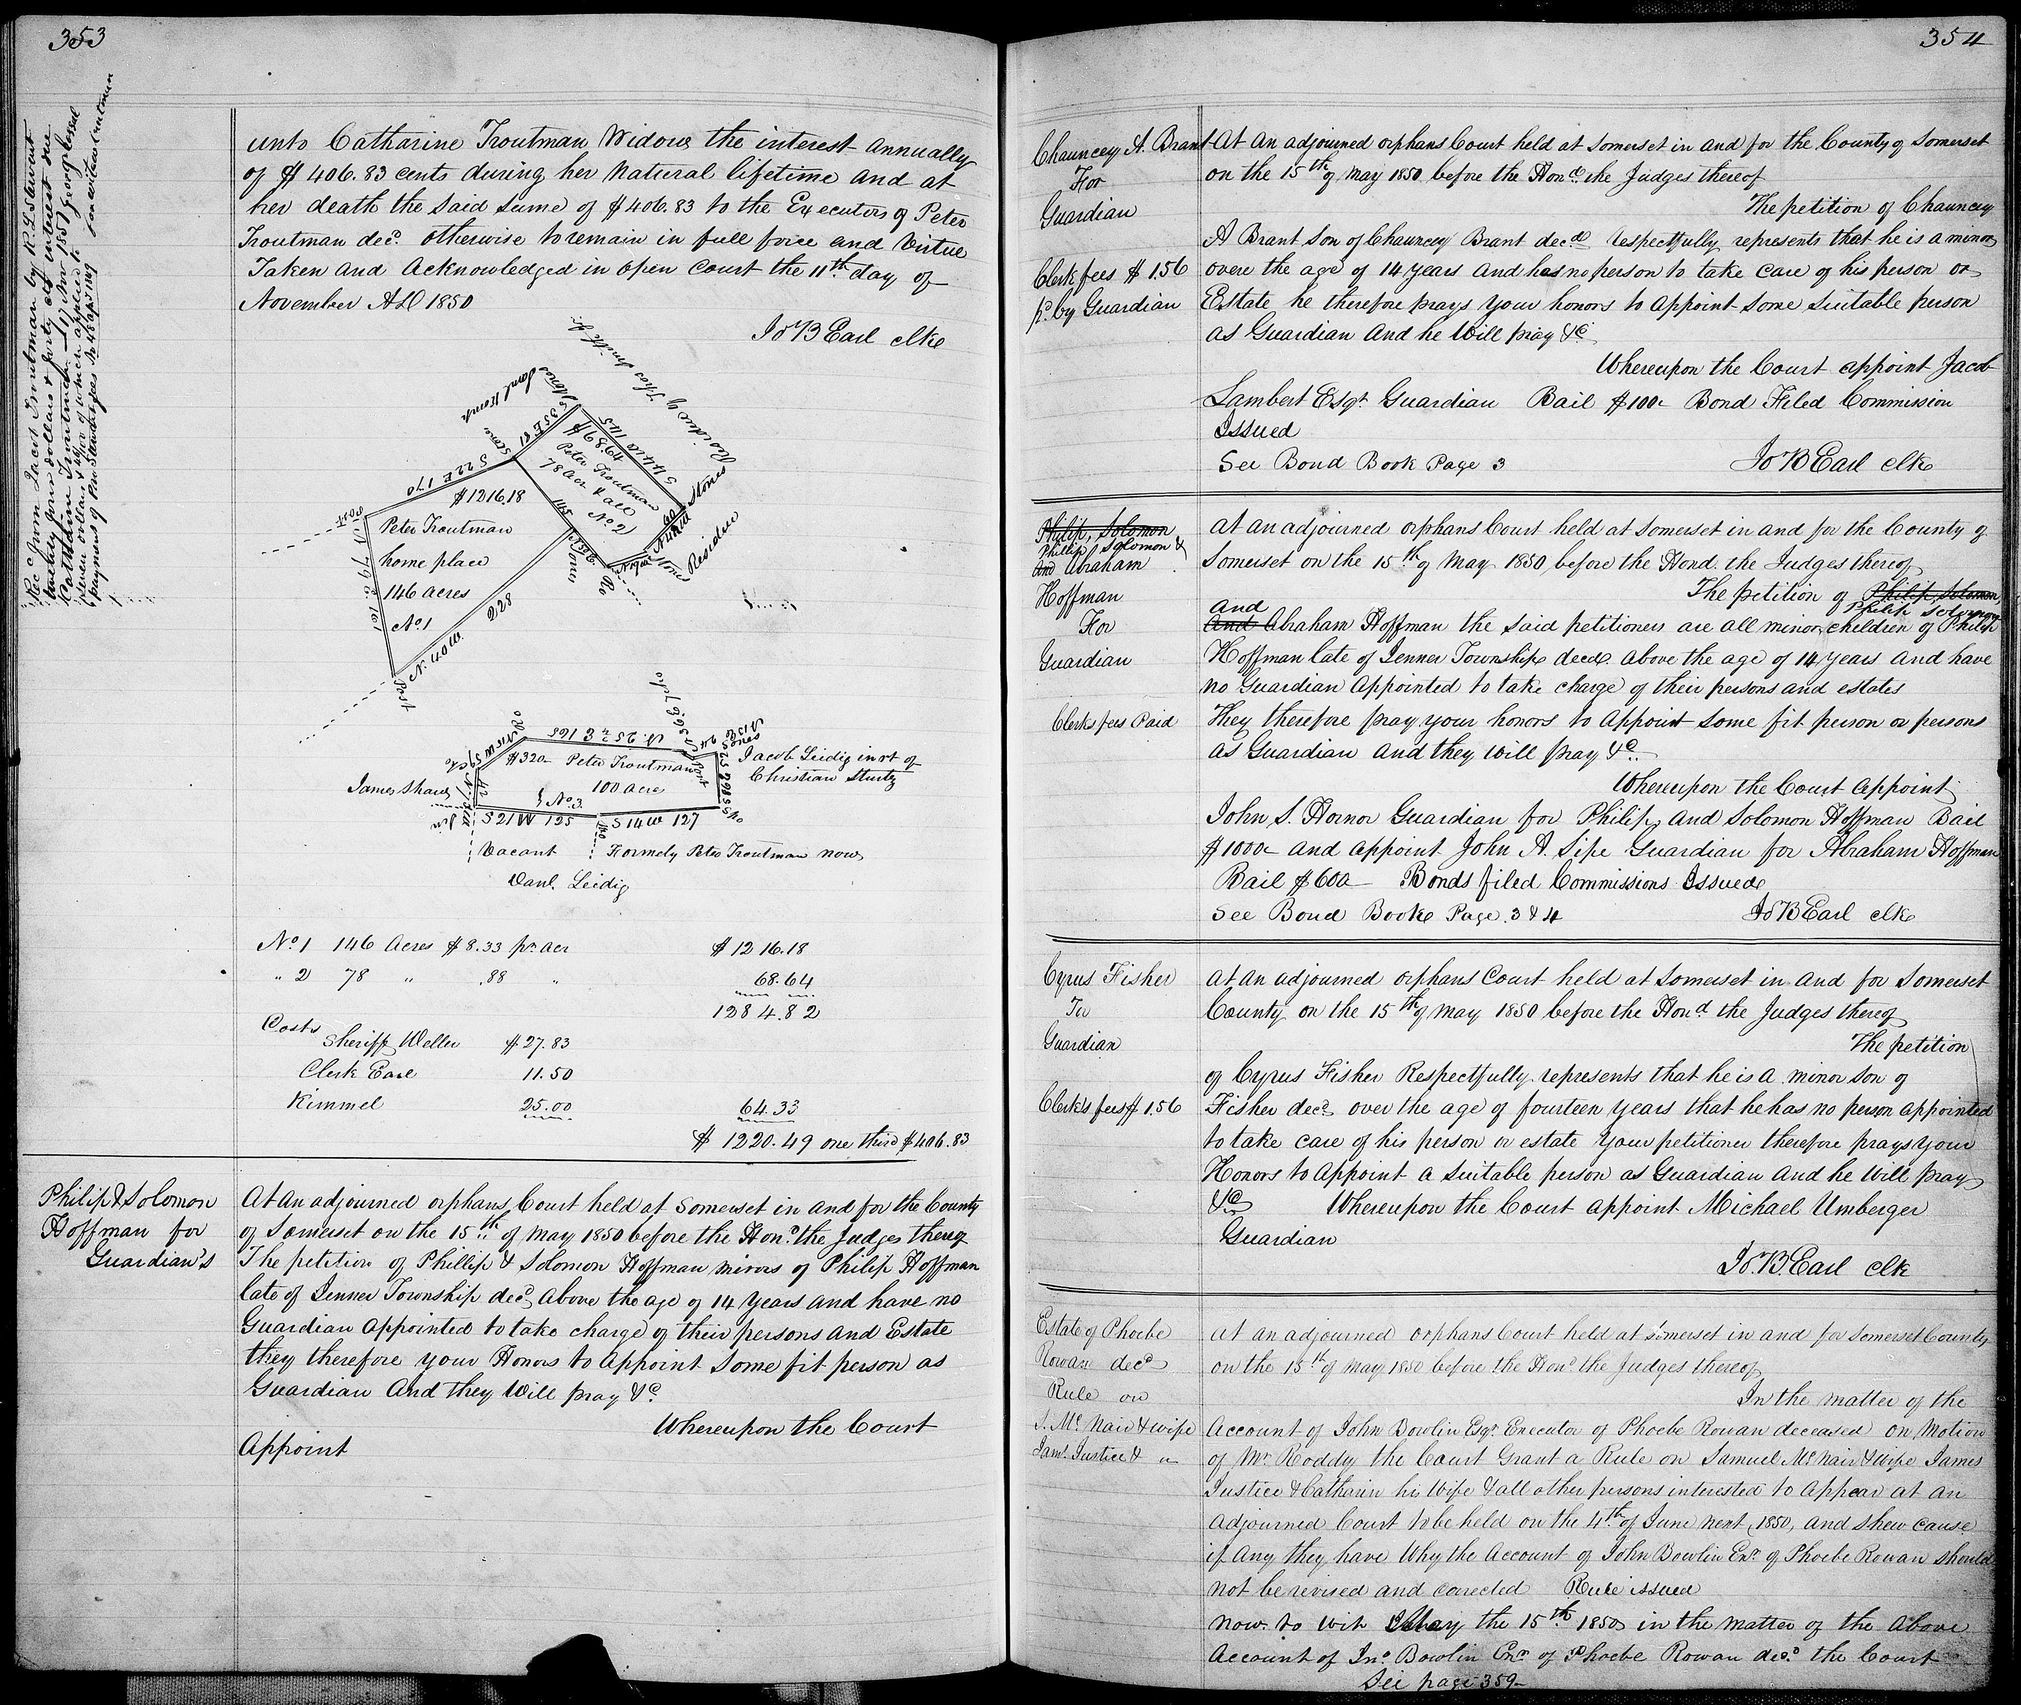 353
Recd from Jacob Troutman by R L Stewart
twenty four dollars & forty cts interest due
Catharine Troutman 17 Nov 1857
seven dollars & of which applied to George Lessel
payment of
unto Catharine Troutman Widow the interest annually
of $406.83 cents during her natural lifetime and at
her death the said sume of $406.83 to the Executers of Peter
Troutman decd. otherwise to remain in full force and virtue
Taken and Acknowledged in open Court the 11th day of
November AD 1850
Jo B Earl clke
Residue of Thos Smith Jr.
Stones Saml Hench
S 35 E 81
Stones
S 22 E 170
Post
$1216.18
Peter Troutman
home place
146 acres
No 1
N 79 E 161
Post
N. 40 W. 228
Stones
$68.64
Peter Troutman
78 Acr & all
No 2
S 44 W 145
145
Stones
Residue
James Sharp
$320- Peter Troutman
100 acre
No 3.
N. 25 ½ E 165
Post
Jacob Leidig in rt of
Christian Sturtz
S 21 W 125
S 14 W 127
Vacant
Formely Peter Troutman now
Danl. Leidig
No 1 146 Acres $8.33 pr. acr $1216.18
" 2 78 " .88 " 68.64
1284.82
Costs
Sheriff Weller $27.83
Clerk Earl 11.50
Kimmel 25.00 64.33
$1220.49 one third $406.83
Philip & Solomon
Hoffman for
Guardian's
At An adjourned orphans Court held at Somerset in and for the County
of Somerset on the 15th of May 1850 before the Hond. the Judges thereof
The petition of Phillip & Solomon Hoffman minors of Philip Hoffman
late of Jenner Township decd. above the age of 14 years and have no
Guardian appointed to take charge of their persons and Estate
they therefore your Honors to Appoint some fit person as
Guardian And they will pray &c.
Whereupon the Court
Appoint
354
Chauncey A. Brant
For
Guardian
Clerk fees $1.56
pd. by Guardian
At An adjourned orphans Court held at Somerset in and for the County of Somerset
on the 15th of May 1850 before the Hond. the Judges thereof
The petition of Chauncey
A Brant son of Chauncey Brant decd. respectfully represents that he is a minor
overe the age of 14 years and has no person to take care of his person or
Estate he therefore prays your honors to appoint some suitable person
as Guardian And he will pray &c
Whereupon the Court appoint Jacob
Lambert Esqr. Guardian Bail $100- Bond Filed Commission
Issued
See Bond Book Page 3
Jo B Earl clke
Philip, Solomon
Phillip, Solomon &
And Abraham
Hoffman
For
Guardian
Clerks fees Paid
At an adjourned orphans Court held at Somerset in and for the County of
Somerset on the 15th of May 1850 before the Hond. the Judges thereof
The petition of Philip, Solomon,
Philip Solomon
and
And Abraham Hoffman the said petitioners are all minor children of Philip
Hoffman late of Jenner Township decd. above the age of 14 years and have
no Guardian Appointed to take charge of their persons and estates
They therefore pray your honors to appoint some fit person or persons
as Guardian and they will pray &c
Whereupon the Court Appoint
John S. Hornor Guardian for Philip and Solomon Hoffman Bail
$1000- and appoint John A. Sipe Guardian for Abraham Hoffman
Bail $600- Bonds filed Commissions Issued
See Bond Booke Page. 3 & 4
Jo B Earl clke
Cyrus Fisher
For
Guardian
Clerk's fees $1.56
At An adjourned orphans Court held at Somerset in and for Somerset
County on the 15th of May 1850 before the Hond the Judges thereof
The petition
of Cyrus Fisher Respectfully represents that he is a minor son of
Fisher decd. over the age of fourteen years that he has no person appointed
to take care of his person or estate your petitioner therefore prays your
Honors to appoint a suitable person as Guardian and he will pray
&c Whereupon the Court appoint Michael Umberger
Guardian
Jo. B. Earl clke
Estate of Phoebe
Rowan decd
Rule on
S. Mc Nair & wife
Jams. Justice & "
At an adjourned orphans Court held at Somerset in and for Somerset County
on the 15th of May 1850 before the Hond. the Judges thereof
In the matter of the
Account of John Bowlin Esqr. Executor of Phoebe Rowan deceased on Motion
of Mr Roddy the Court Grant a Rule on Samuel Mc Nair & wife James
Justice & Catharin his wife & all other persons interested to appear at an
Adjourned Court to be held on the 4th of June next, 1850, and shew cause
if any they have why the Account of John Bowlin Exr. of Phoebe Rowan should
not be revised and corrected Rule issued
Now to wit May the 15th 1850 in the matter of the above
Account of Jno. Bowlin Exr. of Phoebe Rowan decd. the Court
See page 359-